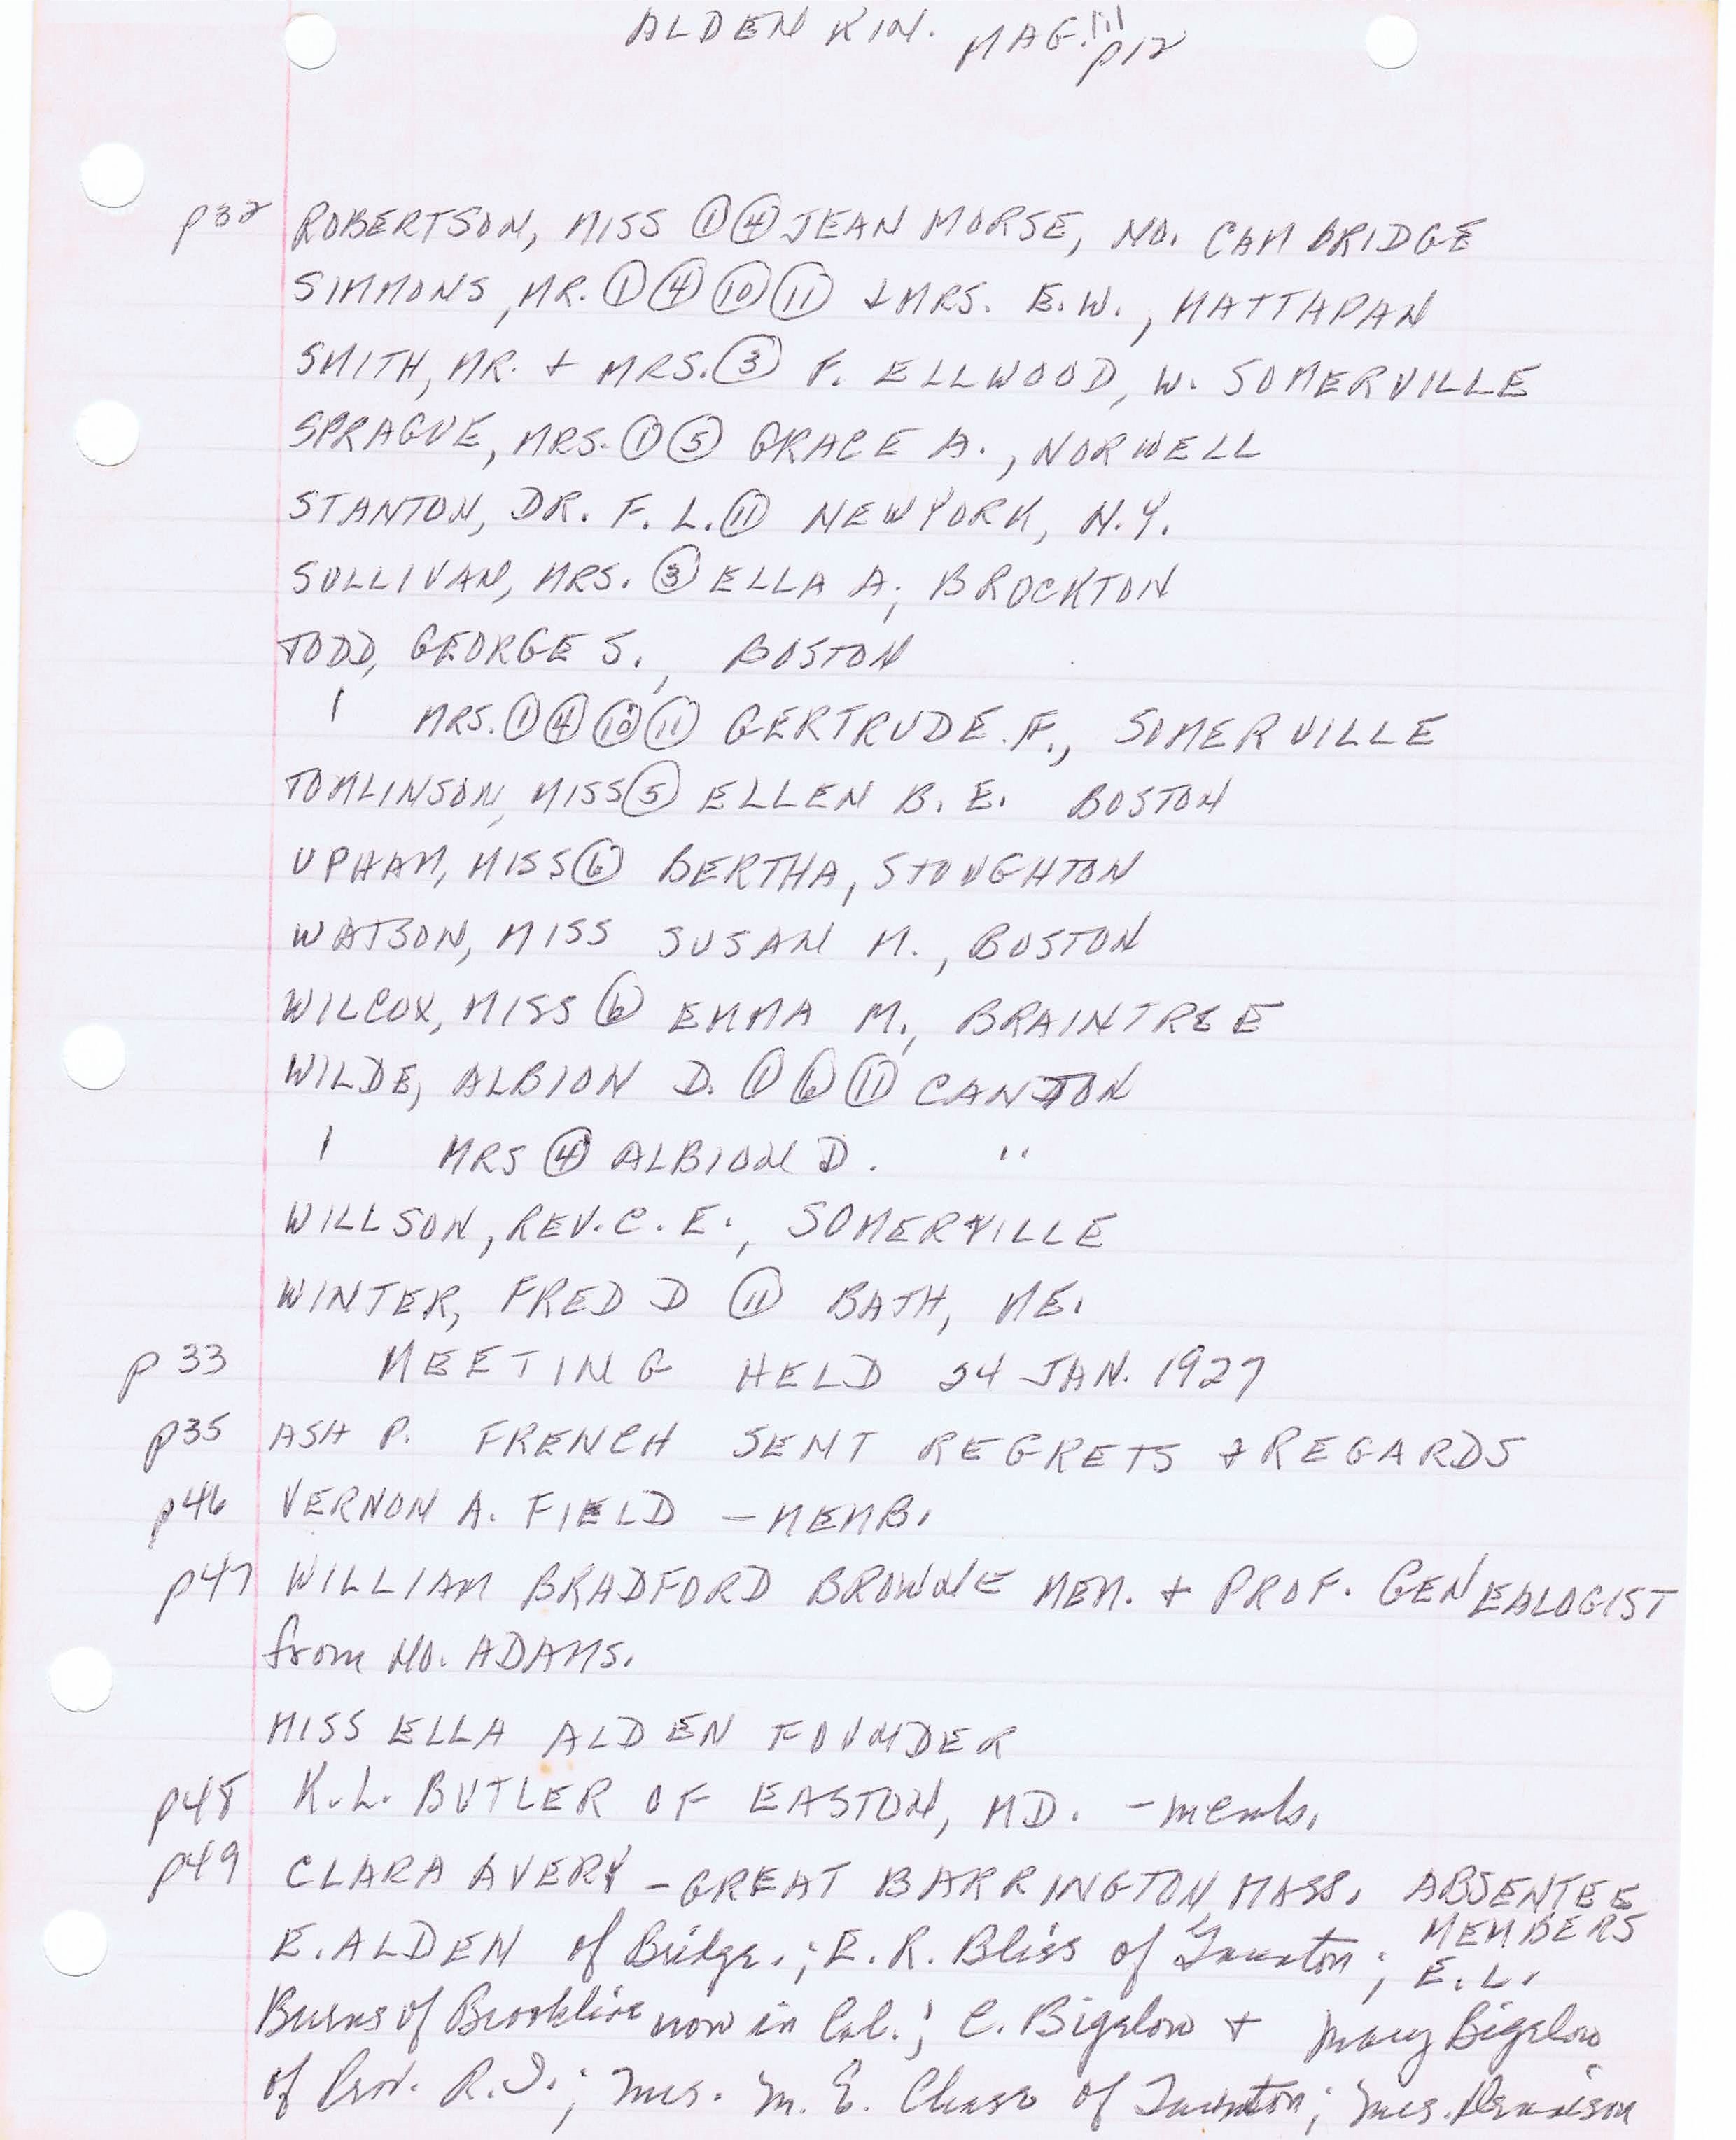 ALDEN KIN. MAG. III p12
p32 ROBERTSON, MISS ① ④ JEAN MORSE, NO. CAMBRIDGE
SIMMONS, MR. ① ④ ⑩ ⑪ + MRS. E.W., MATTAPAN
SMITH, MR. + MRS. ③ F. ELLWOOD, W. SOMERVILLE
SPRAGUE, MRS. ① ⑤ GRACE A., NORWELL
STANTON, DR. F. L. ⑪ NEW YORK, N.Y.
SULLIVAN, MRS. ③ ELLA A; BROCKTON
TODD, GEORGE S., BOSTON
I MRS. ① ④ ⑩ ⑪ GERTRUDE F., SOMERVILLE
TOMLINSON, MISS ⑤ ELLEN B. E. BOSTON
UPHAM, MISS ⑥ BERTHA, STOUGHTON
WATSON, MISS SUSAN M., BOSTON
WILCOX, MISS ⑥ EMMA M., BRAINTREE
WILDE, ALBION D. ① ⑥ ⑪ CANTON
I MRS ④ ALBION D. "
WILLSON, REV. C. E., SOMERVILLE
WINTER, FRED D ⑪ BATH, ME.
p 33 MEETING HELD 24 JAN. 1927
p35 ASA P. FRENCH SENT REGRETS + REGARDS
p46 VERNON A. FIELD - MEMB.
p47 WILLIAM BRADFORD BROWNE MEM. + PROF. GENEALOGIST
from NO. ADAMS.
MISS ELLA ALDEN FOUNDER
p48 K.L. BUTLER OF EASTON, MD. - memb.
p49 CLARA AVERY - GREAT BARRINGTON, MASS. ABSENTEE
MEMBERS
E. ALDEN of Bridge.; E. R. Bliss of Taunton; E. L.
Burns of Brookline now in Cal.; C. Bigelow + Mary Bigelow
of Prov. R.I.; Mrs. M. E. Chase of Taunton; Mrs. Dennison